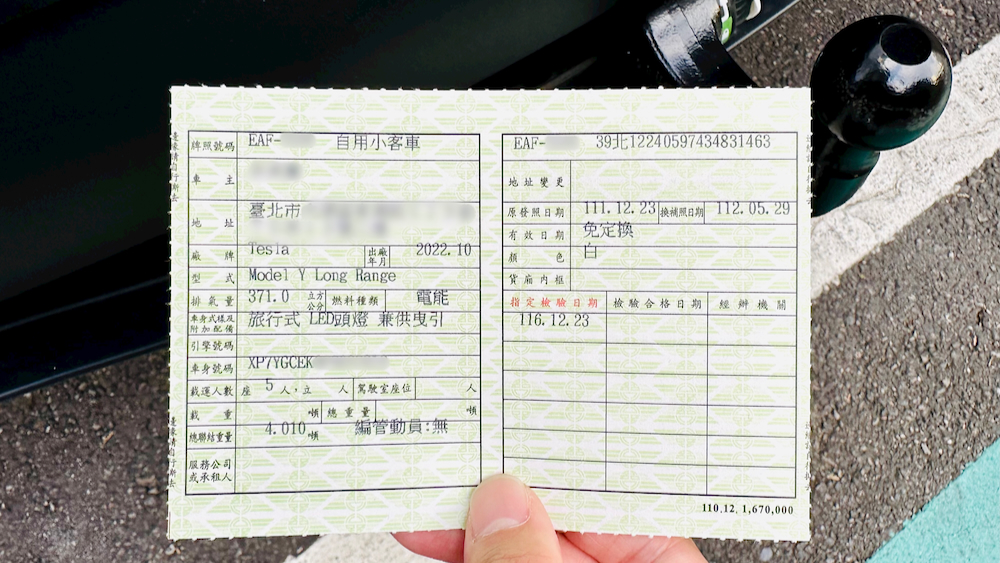 牌照號碼 EAF- 自用小客車
車主
地址 臺北市
廠牌 Tesla 出廠年月 2022.10
型式 Model Y Long Range
排氣量 371.0 立方公分 燃料種類 電能
車身式樣及附加配備 旅行式 LED頭燈 兼供曳引
引擎號碼
車身號碼 XP7YGCEK
載運人數 座 5 人,立 人 駕駛室座位 人
載重 噸 總重量 噸
總聯結重量 4.010 噸 編管動員:無
服務公司或承租人
EAF- 39北12240597434831463
地址變更
原發照日期 111.12.23 換補照日期 112.05.29
有效日期 免定換
顏色 白
貨廂內框
指定檢驗日期 檢驗合格日期 經辦機關
116.12.23
110.12. 1,670,000